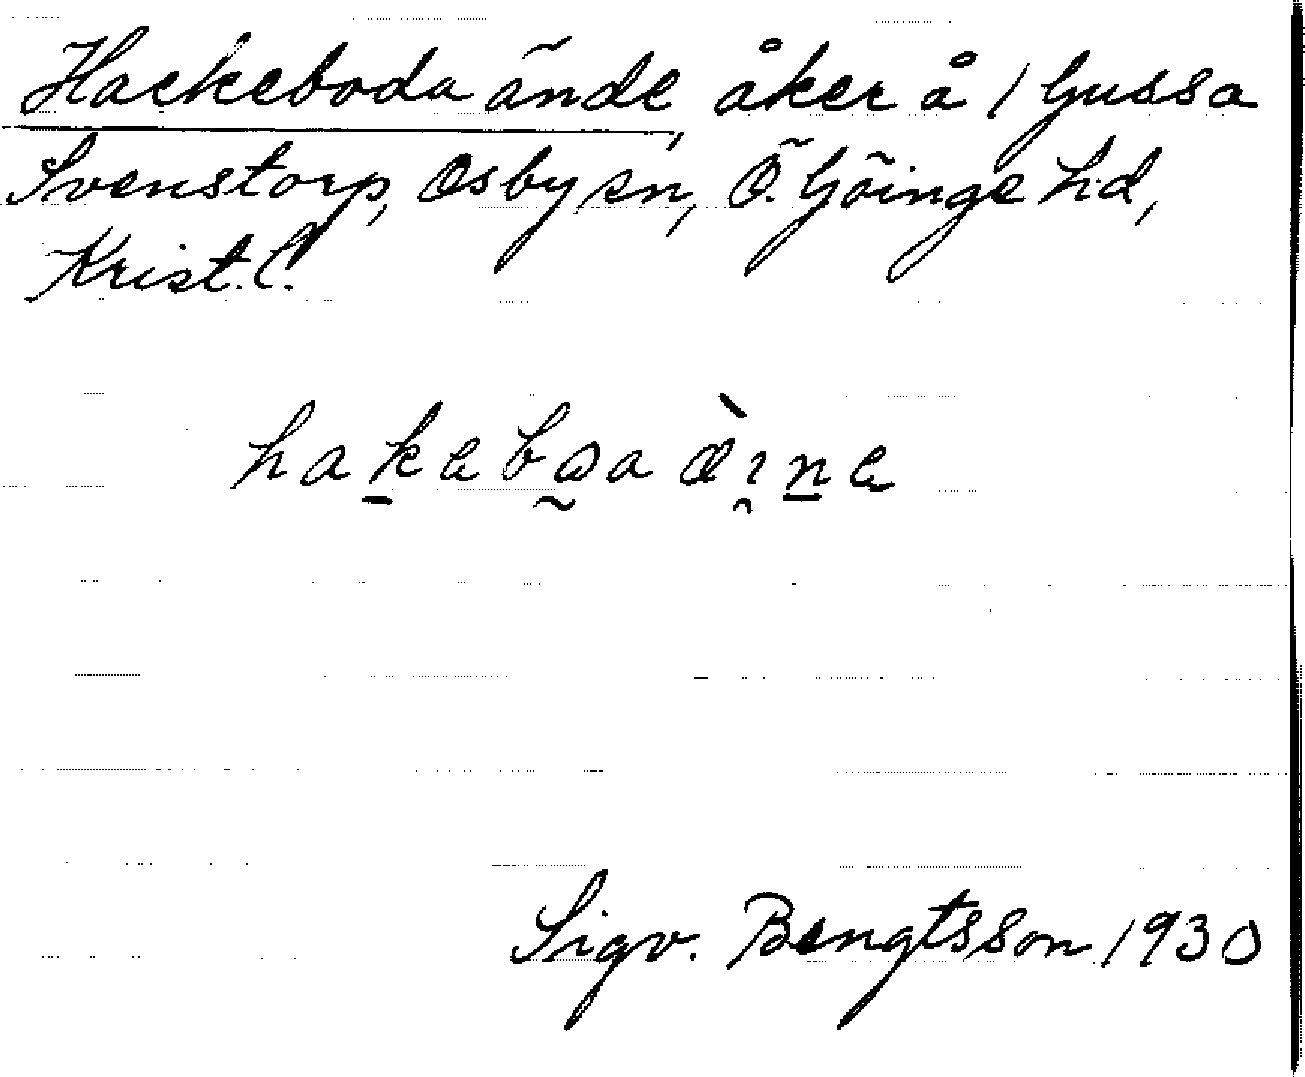 Hackeboda ände, åker å 1 Gussa
Svenstorp, Osby sn, Ö. Göinge hd,
Krist. l.
Sigv. Bengtsson 1930